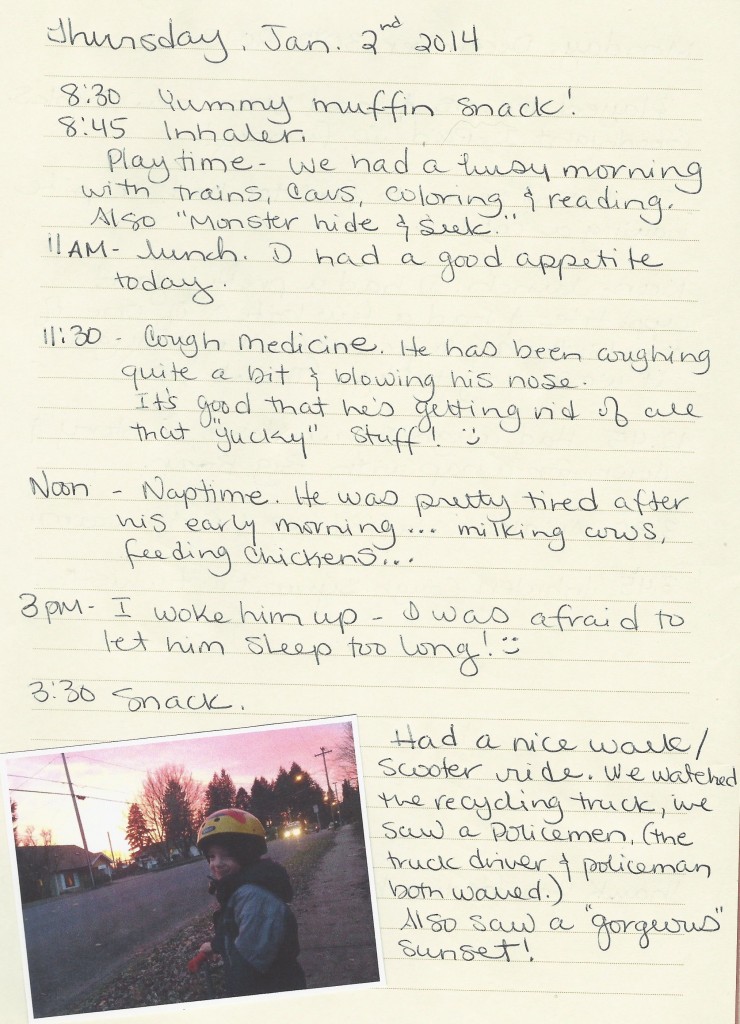 Thursday, Jan. 2nd 2014
8:30 Yummy muffin snack!
8:45 Inhaler.
Playtime - We had a busy morning
with trains, cars, coloring & reading.
Also "Monster hide & seek."
11 AM - lunch. D had a good appetite
today.
11:30 - Cough medicine. He has been coughing
quite a bit & blowing his nose.
It's good that he's getting rid of all
that "yucky" stuff! :)
Noon - Naptime. He was pretty tired after
his early morning... milking cows,
feeding chickens...
3 PM - I woke him up - I was afraid to
let him sleep too long! :)
3:30 Snack.
Had a nice walk/
scooter ride. We watched
the recycling truck, we
saw a policemen, (the
truck driver & policeman
both waved.)
Also saw a "gorgeous"
sunset!